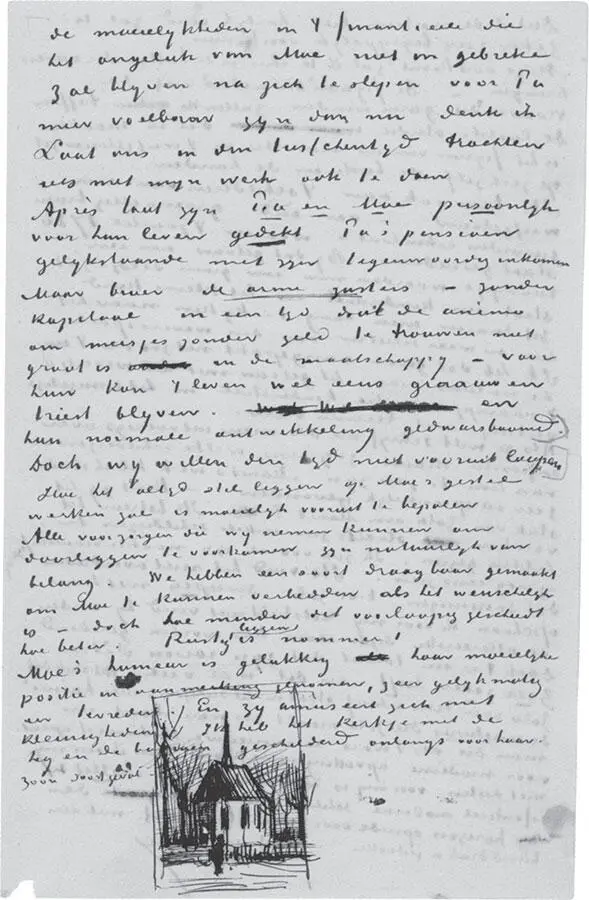 de moeielijkheden in ’t financieele die
het ongeluk van Moe niet in gebreke
zal blijven na zich te slepen voor Pa
meer voelbaar zijn dan nu denk ik
Laat ons in den tusschentijd trachten
iets met mijn werk ook te doen
Après tout zijn Pa en Moe persoonlijk
voor hun leven gedekt Pa’s pensioen
gelijkstaande met zijn tegenwoordig inkomen
Maar broer de arme zusters – zonder
kapitaal in een tijd dat de animo
om meisjes zonder geld te trouwen niet
groot is in de maatschappij – voor
hun kan ’t leven wel eens graauw en
triest blijven. en
hun normale ontwikkeling gedwarsboomd
Doch wij willen den tijd niet vooruit loopen
Hoe het altijd stil leggen op Moe’s gestel
werken zal is moeielijk vooruit te bepalen
Alle voorzorgen die wij nemen kunnen om
doorleggen te voorkomen zijn natuurlijk van
belang. We hebben een soort draagbaar gemaakt
om Moe te kunnen verbedden als het wenschelijk
is – doch hoe minder dit voorloopig geschiedt
hoe beter. Rustig leggen is nommer 1
Moe’s humeur is gelukkig haar moeielijke
positie in aanmerking genomen, zeer gelijkmatig
en tevreden. En zij amuseert zich met
kleinigheden. Ik heb het kerkje met de
heg en de boomen geschilderd onlangs voor haar.
zoo’n soort geval